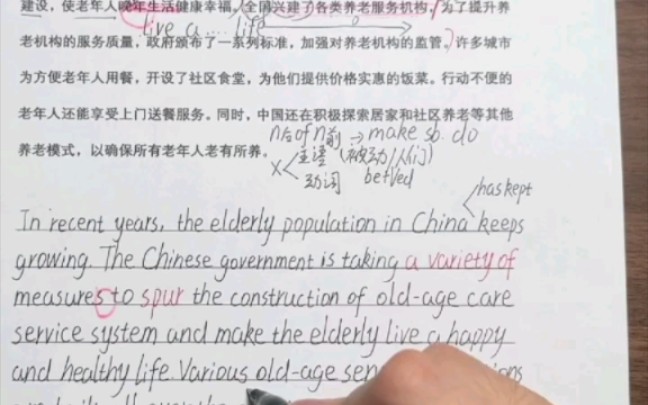 建设,使老年人晚年生活健康幸福。全国兴建了各类养老服务机构,为了提升养
live a .... life
老机构的服务质量,政府颁布了一系列标准,加强对养老机构的监管。许多城市
为方便老年人用餐,开设了社区食堂,为他们提供价格实惠的饭菜。行动不便的
老年人还能享受上门送餐服务。同时,中国还在积极探索居家和社区养老等其他
n后of n前 → make sb. do
养老模式,以确保所有老年人老有所养。
x 主语 (被动/人们)
动词 be+Ved
has kept
In recent years, the elderly population in China keeps
growing. The Chinese government is taking a variety of
measures to spur the construction of old-age care
service system and make the elderly live a happy
and healthy life. Various old-age